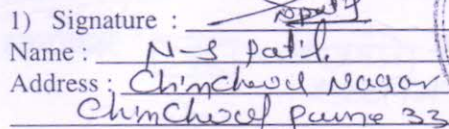 1) Signature :
Name : N-S Patil.
Address : Chinchwad Nagar
Chinchwad Pune 33